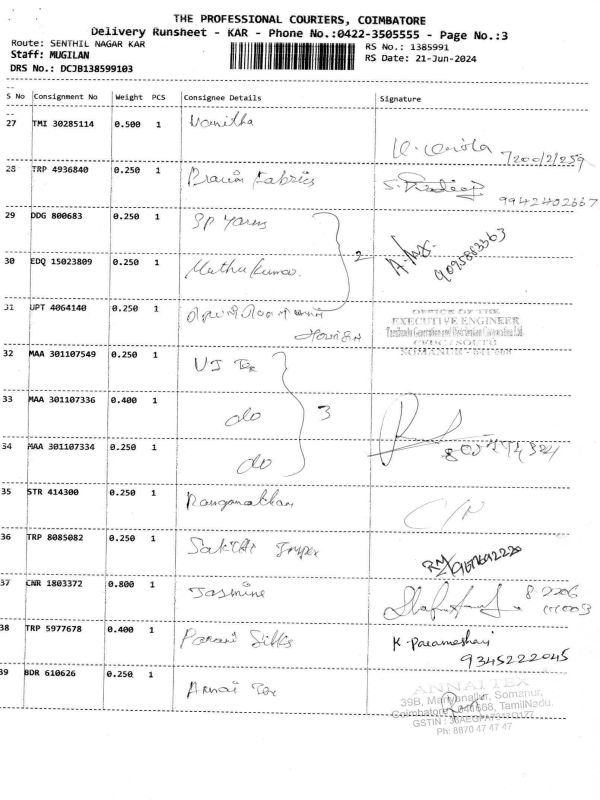 THE PROFESSIONAL COURIERS, COIMBATORE
Delivery Runsheet - KAR - Phone No.:0422-3505555 - Page No.:3
Route: SENTHIL NAGAR KAR
RS No.: 1385991
Staff: MUGILAN
RS Date: 21-Jun-2024
DRS No.: DCJB138599103
S No Consignment No Weight PCS Consignee Details Signature
27 TMI 30285114 0.500 1 Vanitha
28 TRP 4936840 0.250 1 Fabrics
9942402667
29 DDG 800683 0.250 1 SP Yarns
30 EDQ 15023809 0.250 1 Muthu Kumar. 2
9095863363
31 UPT 4064140 0.250 1
OFFICE OF THE
EXECUTIVE ENGINEER
Tamilnadu Generation and Distribution Corporation Ltd.
CEDC / SOUTH
SOMANUR - 641 668
32 MAA 301107549 0.250 1 VJ Tex
33 MAA 301107336 0.400 1 do 3
34 MAA 301107334 0.250 1 do
35 STR 414300 0.250 1 Ranganathan
C/N
36 TRP 8085082 0.250 1 Sakthi Impex
37 CNR 1803372 0.800 1 Jasmine
38 TRP 5977678 0.400 1 Parani Silks K. Parameshari
9345222045
39 BDR 610626 0.250 1 Annai Tex
ANNAI TEX
39B, Somanur,
Coimbatore - 641668, TamilNadu.
GSTIN :
Ph: 8870 47 47 47